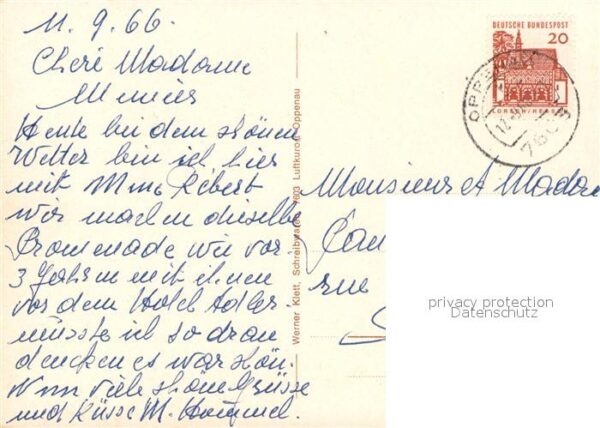 11.9.66.
Cheré Madame
Menier
Heute bei dem schönen
Wetter bin ich hier
mit Mme Robert
wir machen dieselbe
Promenade wie vor
3 Jahren mit ihnen
vor dem Hotel Adler
müsste ich so dran
dencken es war schön.
Nun viele schöne Grüsse
und Küsse M. Hommel.
Werner Klett, Schreibwaren, 7603 Luftkurort Oppenau
DEUTSCHE BUNDESPOST
20
LORSCH/HESSEN
OPPENAU
Monsieur et Madame
rue
privacy protection
Datenschutz